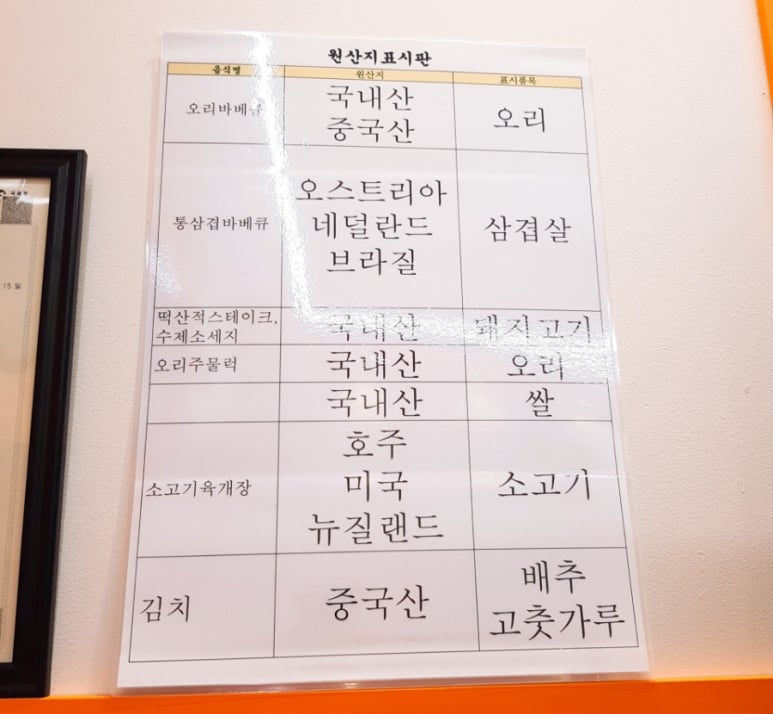 원산지표시판
음식명 원산지 표시품목
오리바베큐 국내산 중국산 오리
통삼겹바베큐 오스트리아 네덜란드 브라질 삼겹살
떡산적스테이크, 수제소세지 국내산 돼지고기
오리주물럭 국내산 오리
국내산 쌀
소고기육개장 호주 미국 뉴질랜드 소고기
김치 중국산 배추 고춧가루
15 일